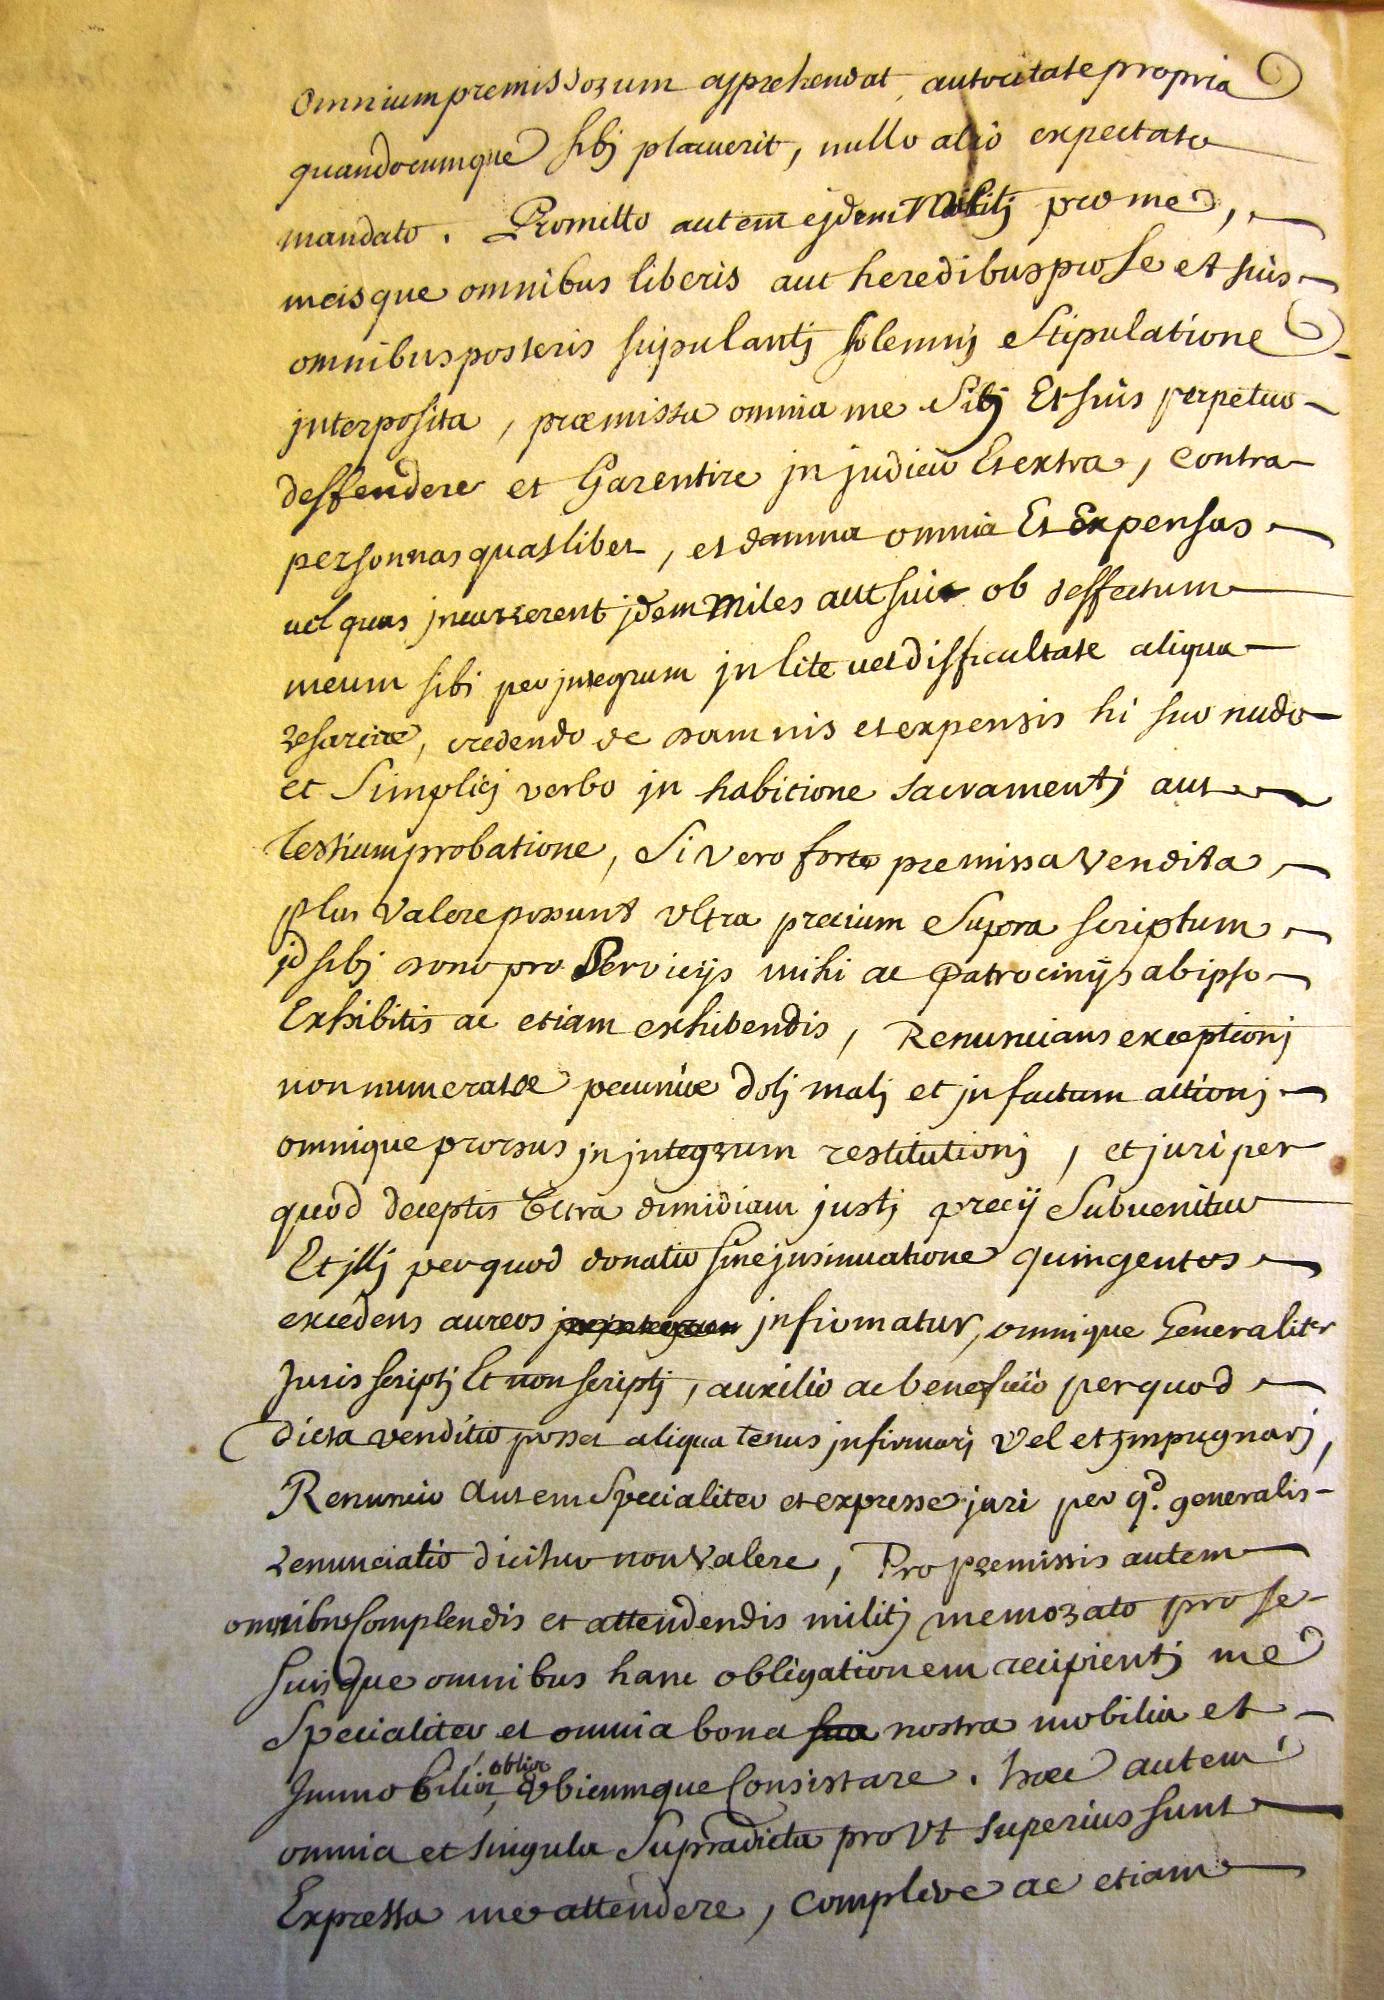 omnium premissorum apprehendat, autoritate propria
quandocumque sibj placuerit, nullo alio expectato
mandato. Promitto autem ejdem Nobilj pro me,
meisque omnibus liberis aut heredibus pro se et suis
omnibus posteris stipulantj solemnj stipulatione
jnterposita, præmissa omnia me sibj Et suis perpetuo
deffendere et Garentire jn judicio Et extra, contra
personnas quaslibet, et damna omnia Et Expensas
vel quas jncurrerent jdem Miles aut sui ob deffectum
meum sibi per jntegrum jn lite vel difficultate aliqua
resarcire, credendo de damnis et expensis hi suo nudo
et Simplicj verbo jn habitione sacramentj aut
testium probatione, Si vero forte premissa Vendita
plus Valere possunt Ultra precium Supra scriptum
jd sibj dono pro Servicijs mihi ac Patrocinijs ab ipso
Exhibitis ac etiam exhibendis, Renuncians exceptionj
non numeratæ pecuniæ dolj malj et jn factum actionj
omnique prorsus jn jntegrum restitutionj, et juri per
quod deceptis Ultra dimidiam justj precij Subvenitur
Et jllj per quod donatio sine jnsinuatione quingentos
excedens aureos jnfirmatur, omnique Generaliter
Juris scriptj Et non scriptj, auxilio ac beneficio per quod
dicta venditio posset aliqua tenus jnfirmarj Vel et jmpugnarj,
Renuncio Autem Specialiter et expresse juri per qd. generalis
renunciatio dicitur non Valere, Pro premissis autem
omnibus Complendis et attendendis militj memorato pro se
suisque omnibus hanc obligationem recipientj me
Specialiter et omnia bona sua nostra mobilia et
Immobilia, obligo Ubicumque Consistare. hæc autem
omnia et singula Supradicta pro Ut superius sunt
Expressa me attendere, complere ac etiam